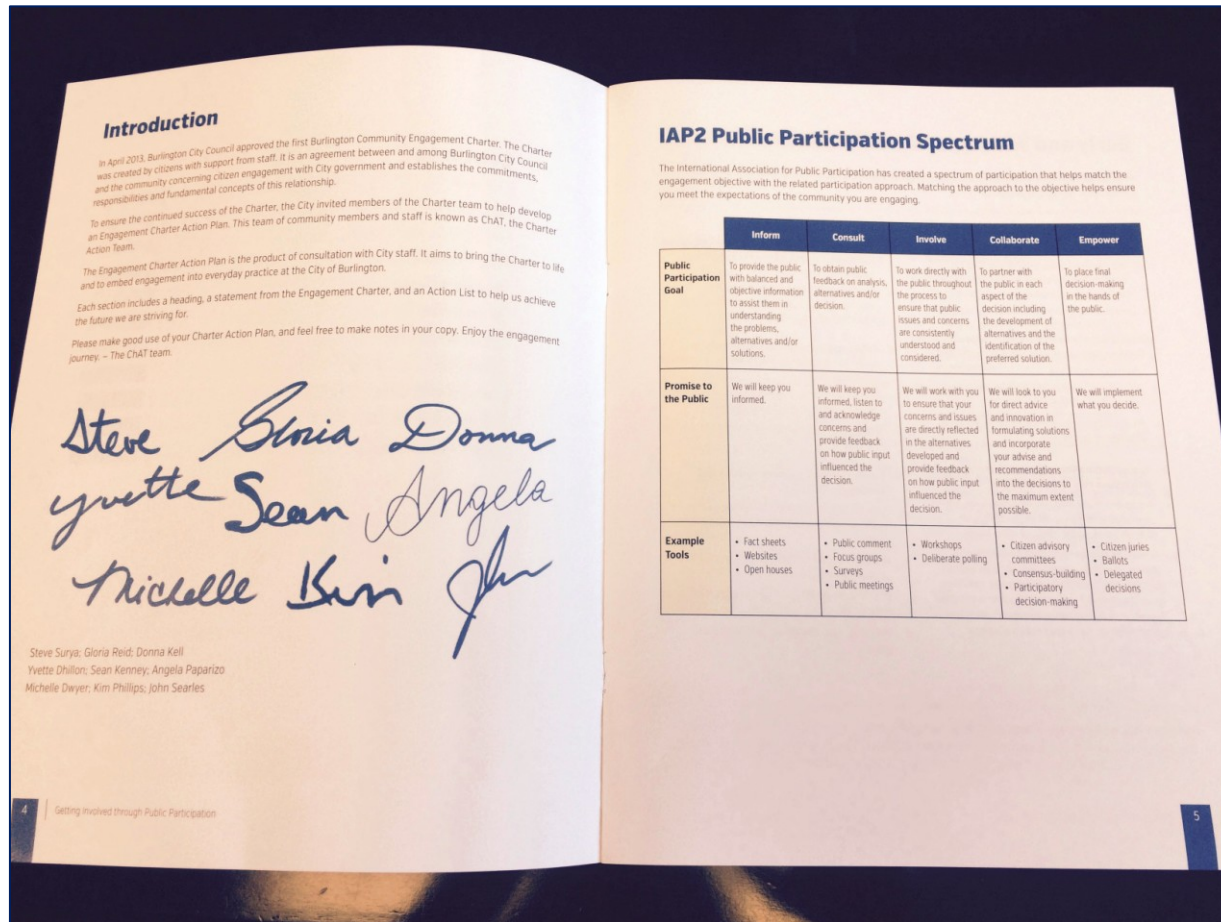 Introduction
In April 2013, Burlington City Council approved the first Burlington Community Engagement Charter. The Charter
was created by citizens with support from staff. It is an agreement between and among Burlington City Council
and the community concerning citizen engagement with City government and establishes the commitments,
responsibilities and fundamental concepts of this relationship.
To ensure the continued success of the Charter, the City invited members of the Charter team to help develop
an Engagement Charter Action Plan. This team of community members and staff is known as ChAT, the Charter
Action Team.
The Engagement Charter Action Plan is the product of consultation with City staff. It aims to bring the Charter to life
and to embed engagement into everyday practice at the City of Burlington.
Each section includes a heading, a statement from the Engagement Charter, and an Action List to help us achieve
the future we are striving for.
Please make good use of your Charter Action Plan, and feel free to make notes in your copy. Enjoy the engagement
journey. – The ChAT team.
Steve Gloria Donna
Yvette Sean Angela
Michelle Kim John
Steve Surya; Gloria Reid; Donna Kell
Yvette Dhillon; Sean Kenney; Angela Paparizo
Michelle Dwyer; Kim Phillips; John Searles
4 Getting Involved through Public Participation
IAP2 Public Participation Spectrum
The International Association for Public Participation has created a spectrum of participation that helps match the
engagement objective with the related participation approach. Matching the approach to the objective helps ensure
you meet the expectations of the community you are engaging.
Inform Consult Involve Collaborate Empower
Public
Participation
Goal
To provide the public
with balanced and
objective information
to assist them in
understanding
the problems,
alternatives and/or
solutions.
To obtain public
feedback on analysis,
alternatives and/or
decision.
To work directly with
the public throughout
the process to
ensure that public
issues and concerns
are consistently
understood and
considered.
To partner with
the public in each
aspect of the
decision including
the development of
alternatives and the
identification of the
preferred solution.
To place final
decision-making
in the hands of
the public.
Promise to
the Public
We will keep you
informed.
We will keep you
informed, listen to
and acknowledge
concerns and
provide feedback
on how public input
influenced the
decision.
We will work with you
to ensure that your
concerns and issues
are directly reflected
in the alternatives
developed and
provide feedback
on how public input
influenced the
decision.
We will look to you
for direct advice
and innovation in
formulating solutions
and incorporate
your advise and
recommendations
into the decisions to
the maximum extent
possible.
We will implement
what you decide.
Example
Tools
• Fact sheets
• Websites
• Open houses
• Public comment
• Focus groups
• Surveys
• Public meetings
• Workshops
• Deliberate polling
• Citizen advisory
committees
• Consensus-building
• Participatory
decision-making
• Citizen juries
• Ballots
• Delegated
decisions
5